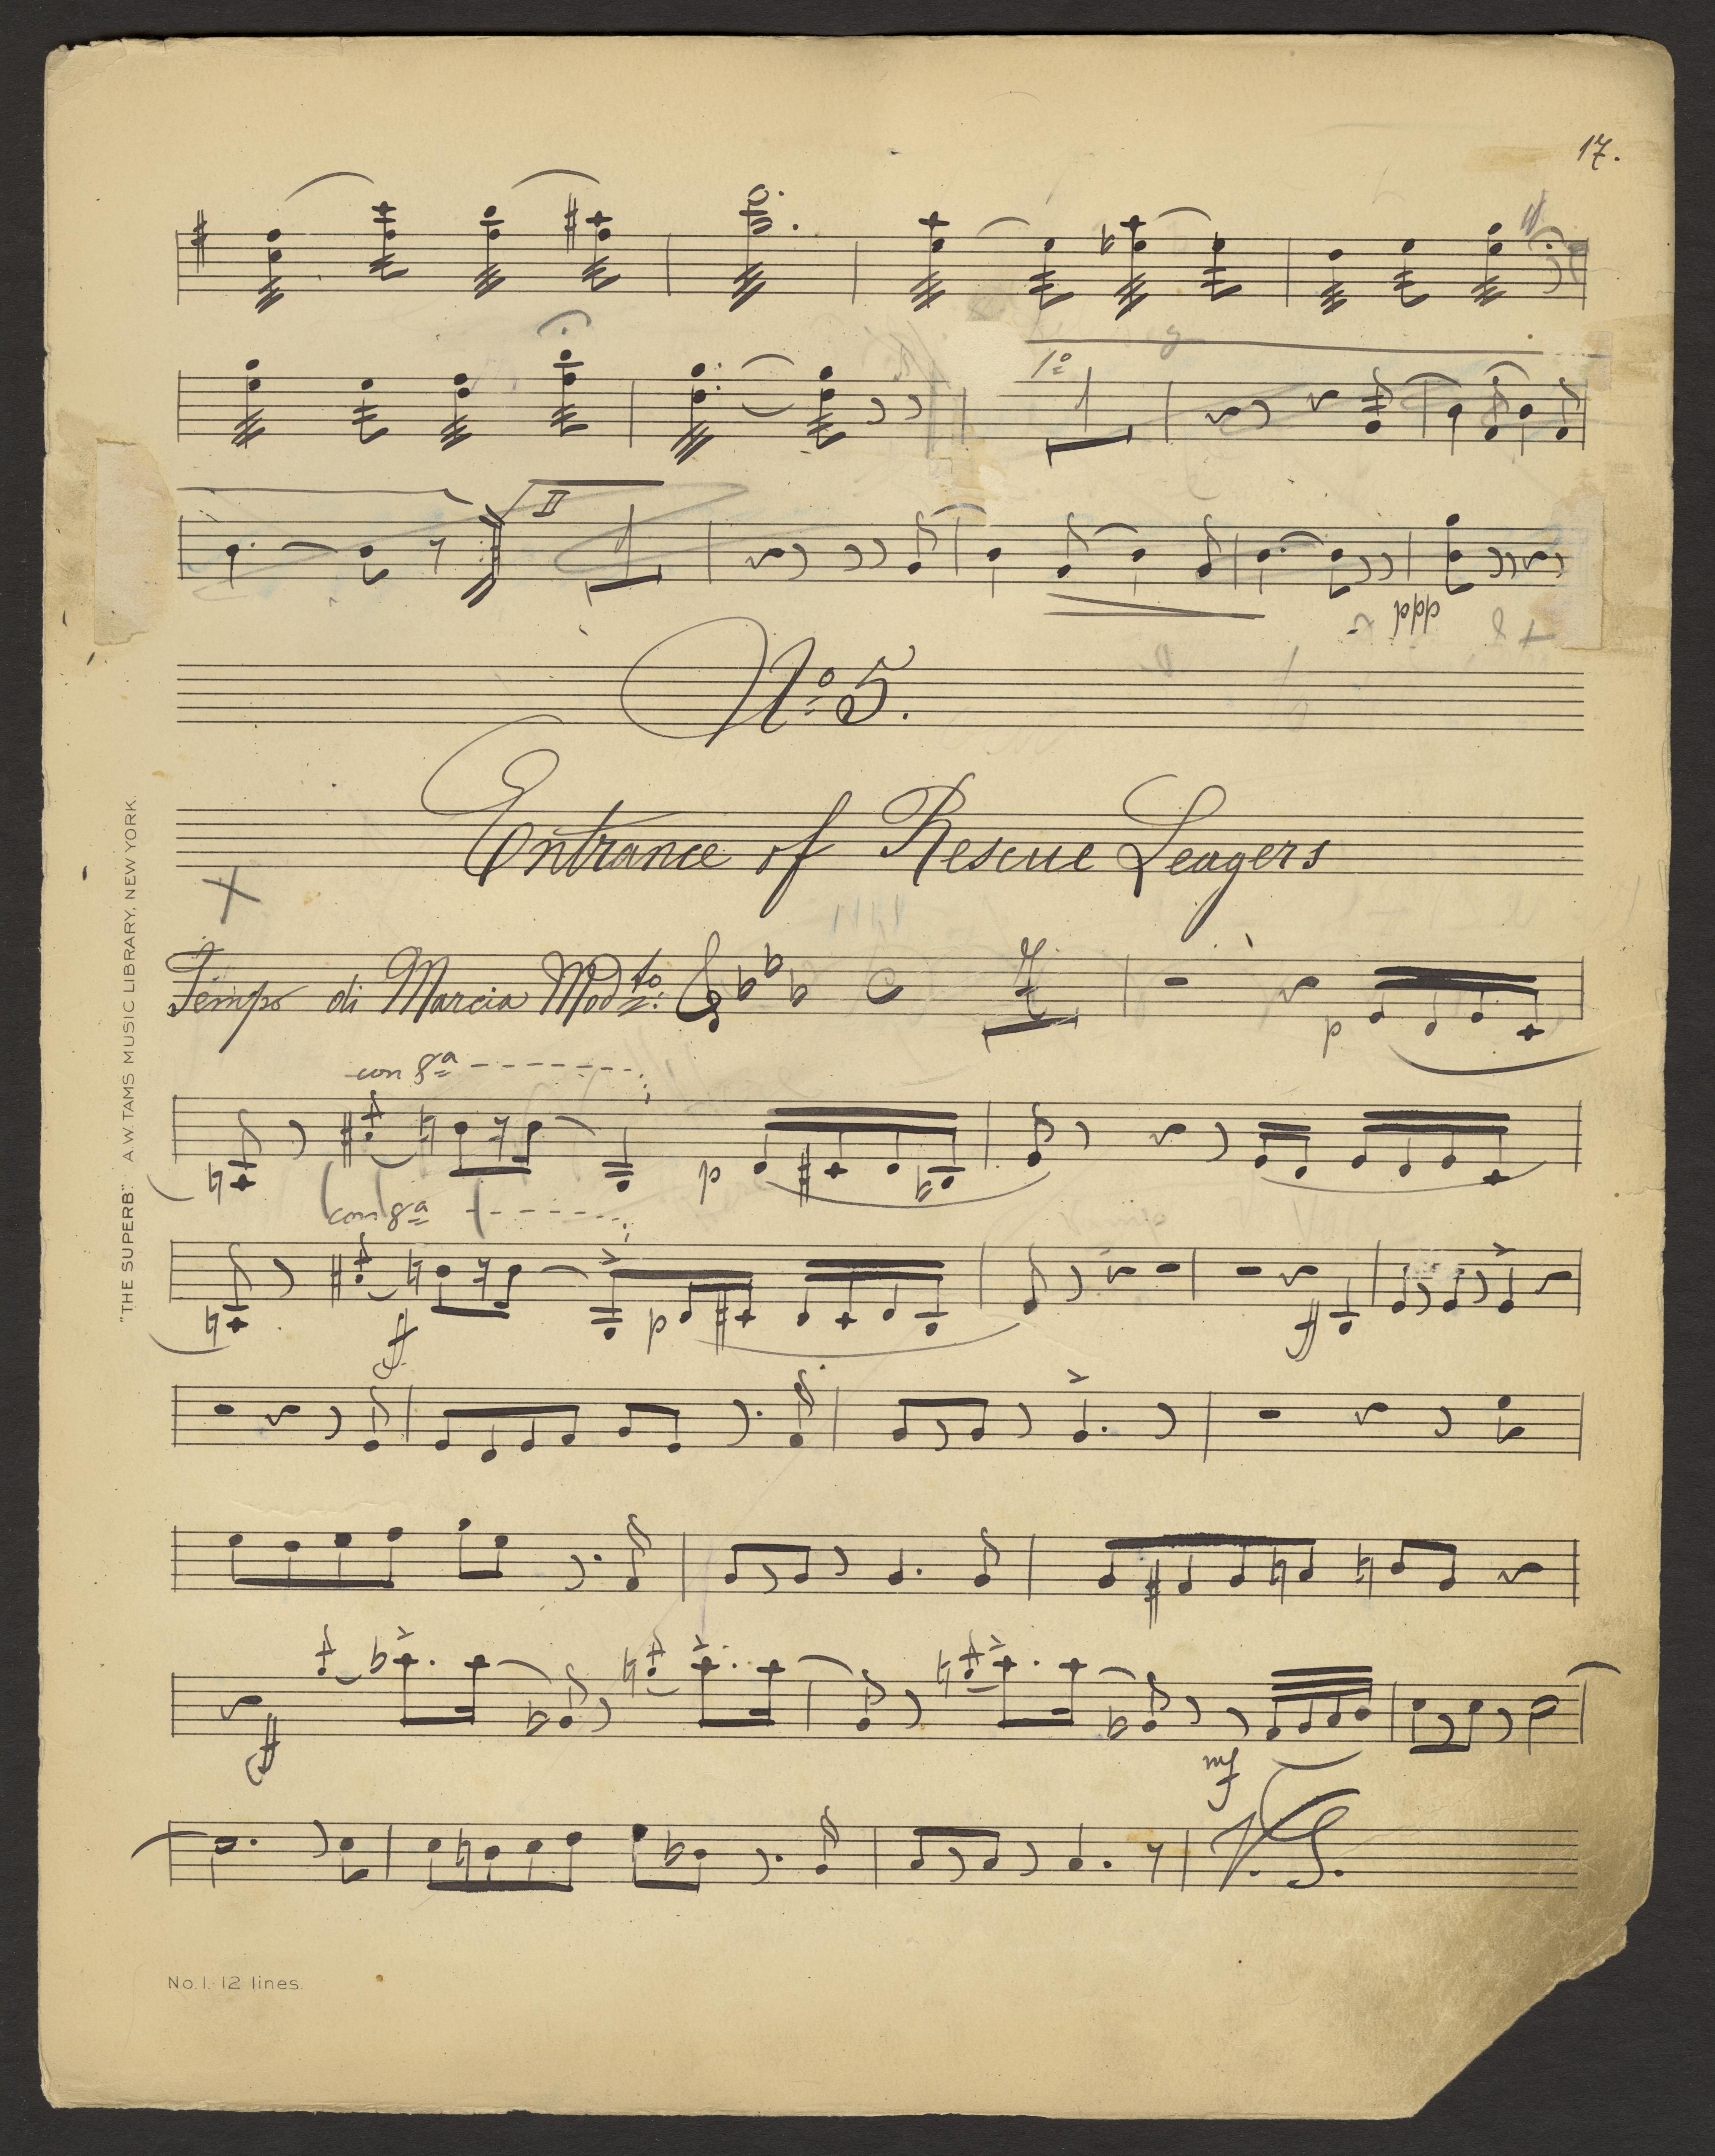 17.
1º
1
II
1
ppp
Nº 5.
Entrance of Rescue Leagers
Tempo di Marcia Modto:
p
con 8a
p
con 8a
ff
p
ff
ff
mf
V.S.
"THE SUPERB". A.W. TAMS MUSIC LIBRARY, NEW YORK.
No. 1. 12 lines.